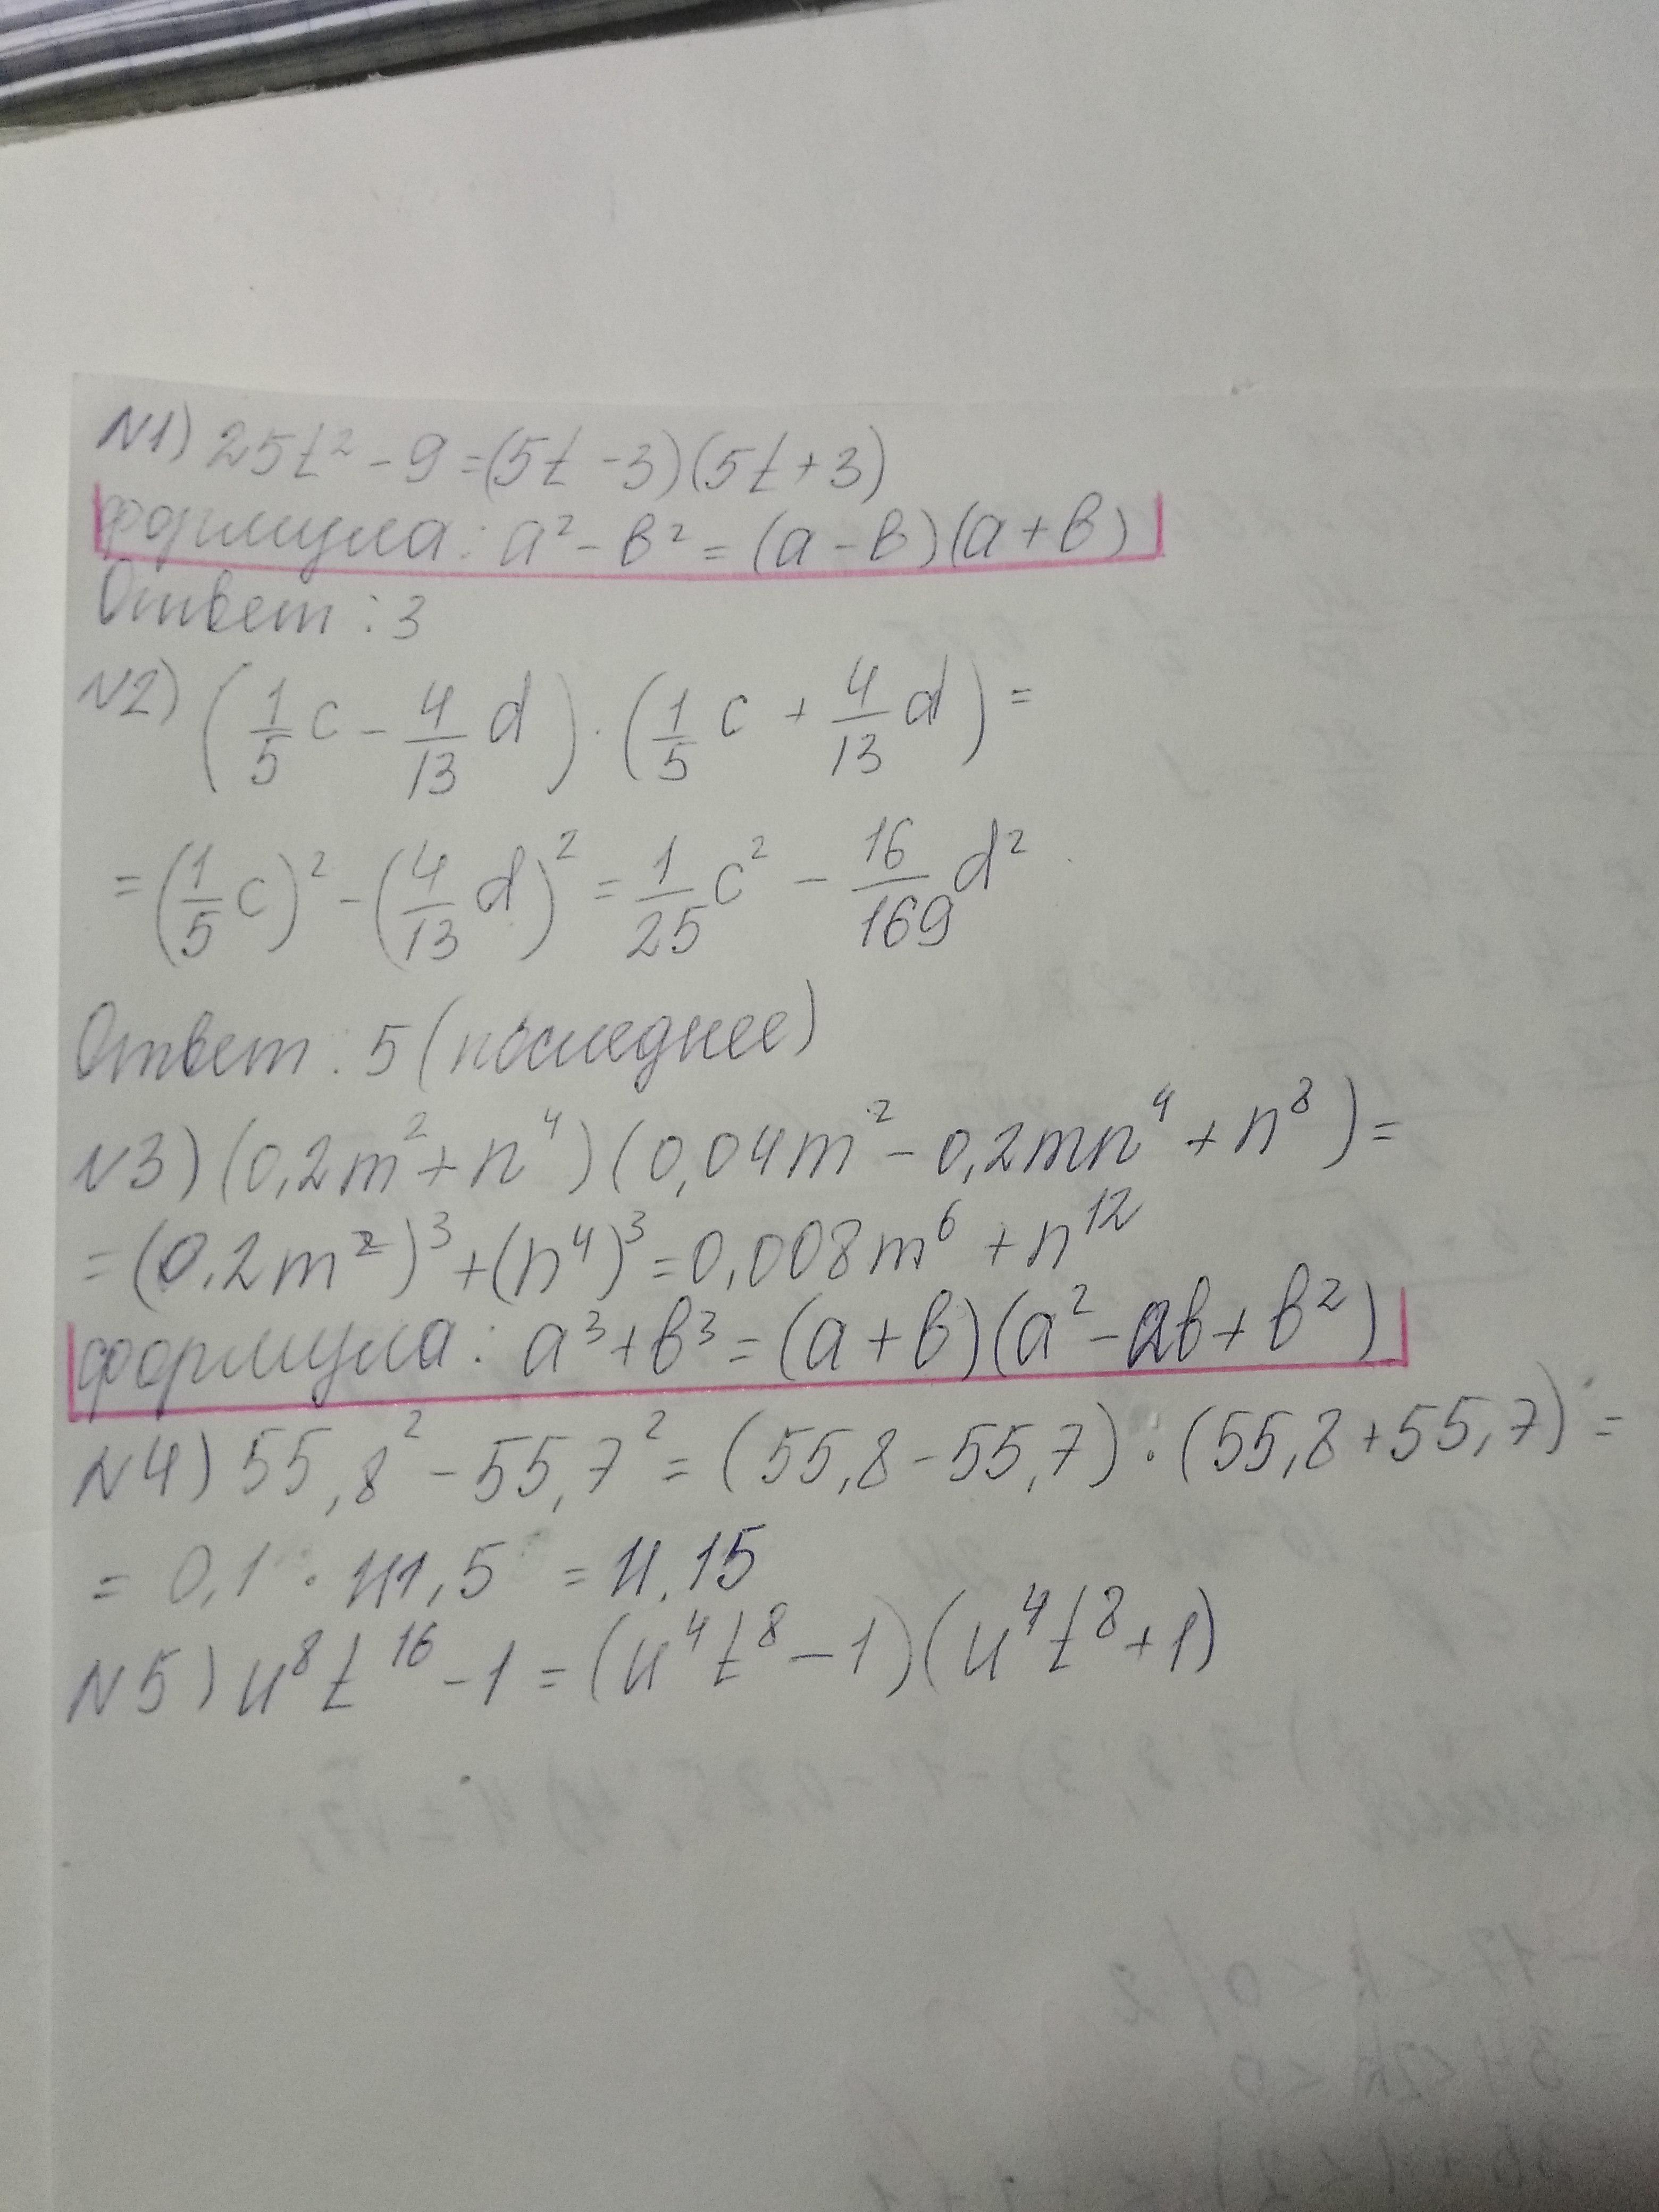 N1) 25t² - 9 = (5t - 3)(5t + 3)
формула: a² - в² = (a - в)(a + в)
Ответ: 3
N2) (1/5 c - 4/13 d) · (1/5 c + 4/13 d) =
= (1/5 c)² - (4/13 d)² = 1/25 c² - 16/169 d²
Ответ: 5 (последнее)
N3) (0,2m² + n⁴)(0,04m² - 0,2mn⁴ + n⁸) =
= (0,2m²)³ + (n⁴)³ = 0,008m⁶ + n¹²
формула: a³ + в³ = (a + в)(a² - ав + в²)
N4) 55,8² - 55,7² = (55,8 - 55,7) · (55,8 + 55,7) =
= 0,1 · 111,5 = 11,15
N5) u⁸t¹⁶ - 1 = (u⁴t⁸ - 1)(u⁴t⁸ + 1)